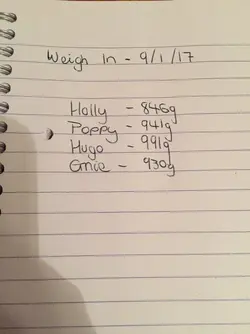 Weigh In - 9/1/17
Holly - 846g
Poppy - 941g
Hugo - 991g
Ernie - 930g